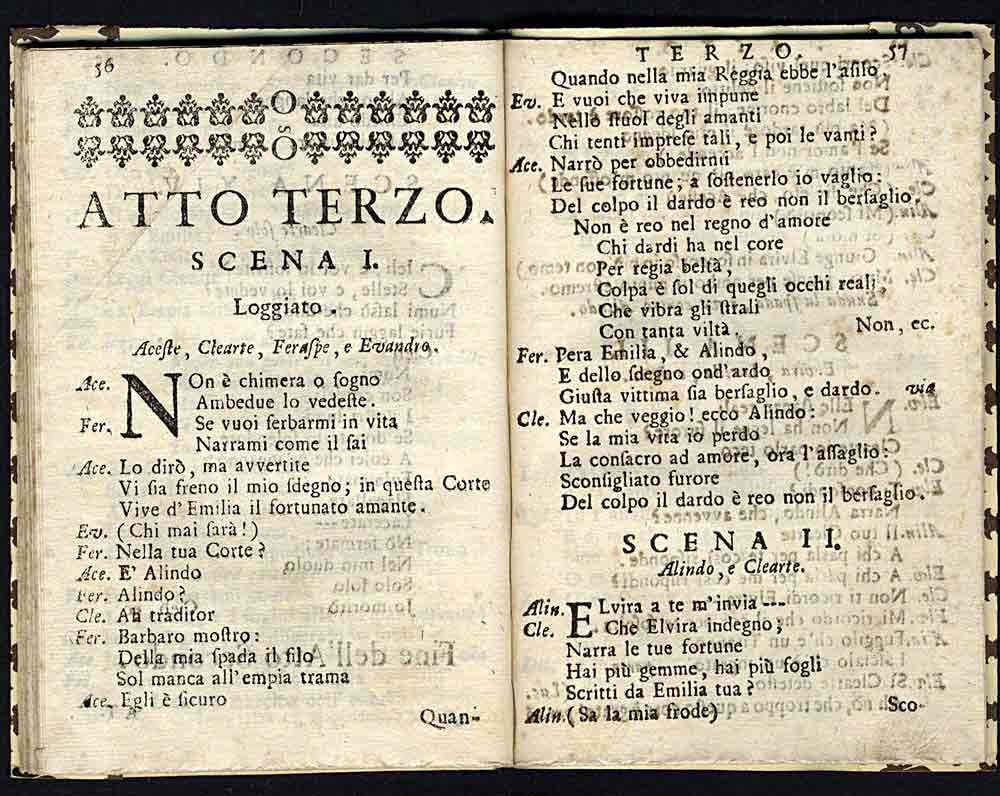 56
ATTO TERZO.
SCENA I.
Loggiato.
Aceſte, Clearte, Feraſpe, e Evandro.
Ace. NOn è chimera o ſogno
Ambedue lo vedeſte.
Fer. Se vuoi ſerbarmi in vita
Narrami come il ſai
Ace. Lo dirò, ma avvertite
Vi ſia freno il mio ſdegno; in queſta Corte
Vive d'Emilia il fortunato amante.
Ev. (Chi mai ſarà!)
Fer. Nella tua Corte?
Ace. E' Alindo
Fer. Alindo?
Cle. Ah traditor
Fer. Barbaro moſtro:
Della mia ſpada il filo
Sol manca all'empia trama
Ace. Egli è ſicuro
Quan-
TERZO. 57
Quando nella mia Reggia ebbe l'aſilo
Ev. E vuoi che viva impune
Nello ſtuol degli amanti
Chi tenti impreſe tali, e poi le vanti?
Ace. Narrò per obbedirmi
Le ſue fortune; a ſoſtenerlo io vaglio:
Del colpo il dardo è reo non il berſaglio.
Non è reo nel regno d'amore
Chi dardi ha nel core
Per regia beltà,
Colpa è ſol di quegli occhi reali,
Che vibra gli ſtrali
Con tanta viltà. Non, ec.
Fer. Pera Emilia, & Alindo,
E dello ſdegno ond'ardo
Giuſta vittima ſia berſaglio, e dardo. via
Cle. Ma che veggio! ecco Alindo:
Se la mia vita io perdo
La conſacro ad amore, ora l'aſſaglio:
Sconſigliato furore
Del colpo il dardo è reo non il berſaglio.
SCENA II.
Alindo, e Clearte.
Alin. ELvira a te m'invia ---
Cle. Che Elvira indegno;
Narra le tue fortune
Hai più gemme, hai più fogli
Scritti da Emilia tua?
Alin. (Sa la mia frode)
Sco-